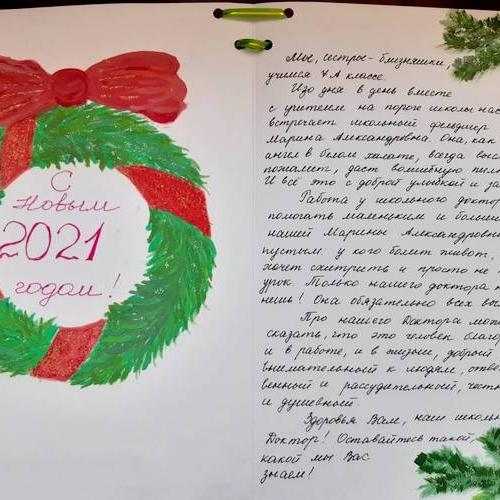 С
Новым
2021
годом!
Мы, сестры-близняшки,
учимся V А классе.
Изо дня в день вместе
с учителем на пороге школы нас
встречает школьный фельдшер
Марина Александровна. Она, как
ангел в белом халате, всегда
пожалеет, даст волшебную
И всё это с доброй улыбкой и
Работа у школьного
помогать маленьким и
нашей Марины
пустым: у кого болит живот,
хочет схитрить и просто не
урок. Только нашего доктора не
нешь! Она обязательно всех
Про нашего Доктора
сказать, что это человек
и в работе, и в жизни, добрый
внимательный к людям,
венный и рассудительный,
и душевный.
Здоровья Вам, наш
Доктор! Оставайтесь такой,
какой мы Вас
знаем!